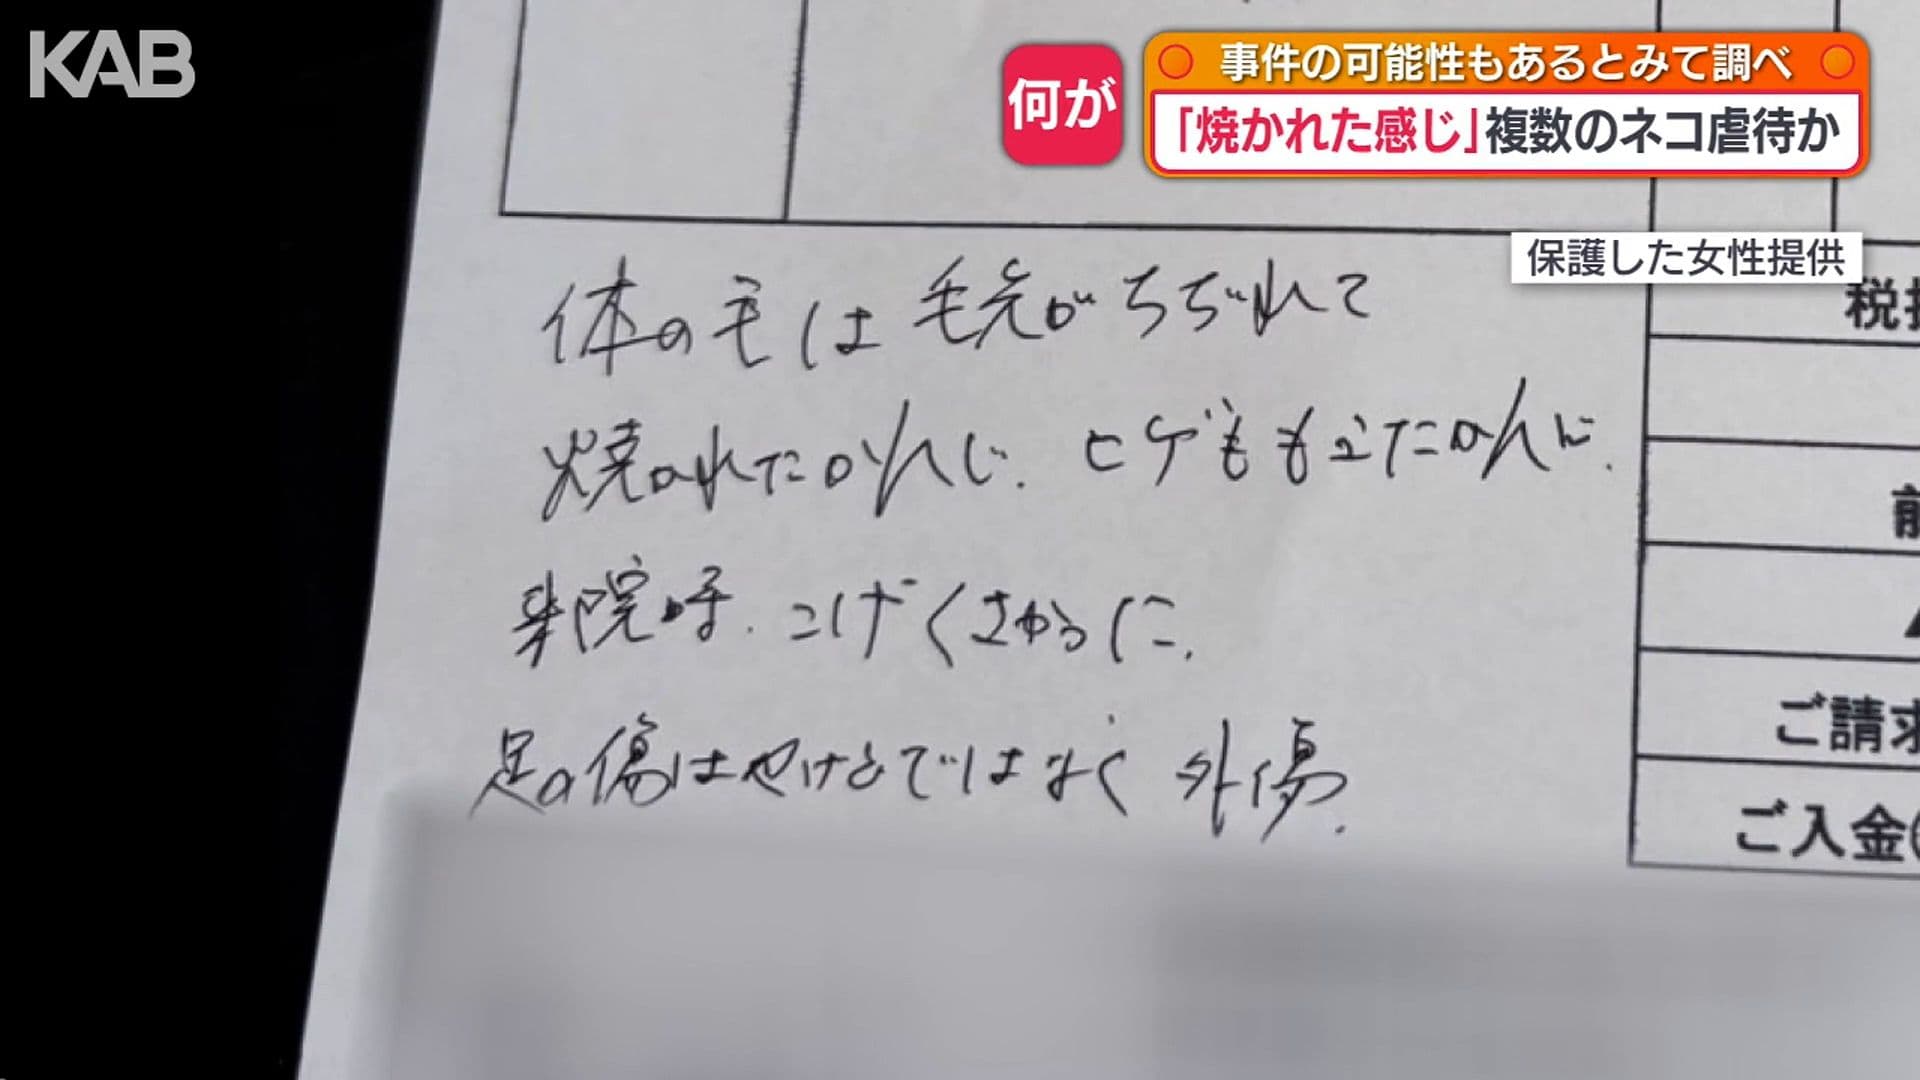 KAB
何が
事件の可能性もあるとみて調べ
「焼かれた感じ」複数のネコ虐待か
保護した女性提供
体の毛は毛先がちぢれて
焼かれたかんじ. ヒゲももえたかんじ.
来院時. こげくさかった.
足の傷はやけどではなく外傷.
税抜
前
ご請求
ご入金(